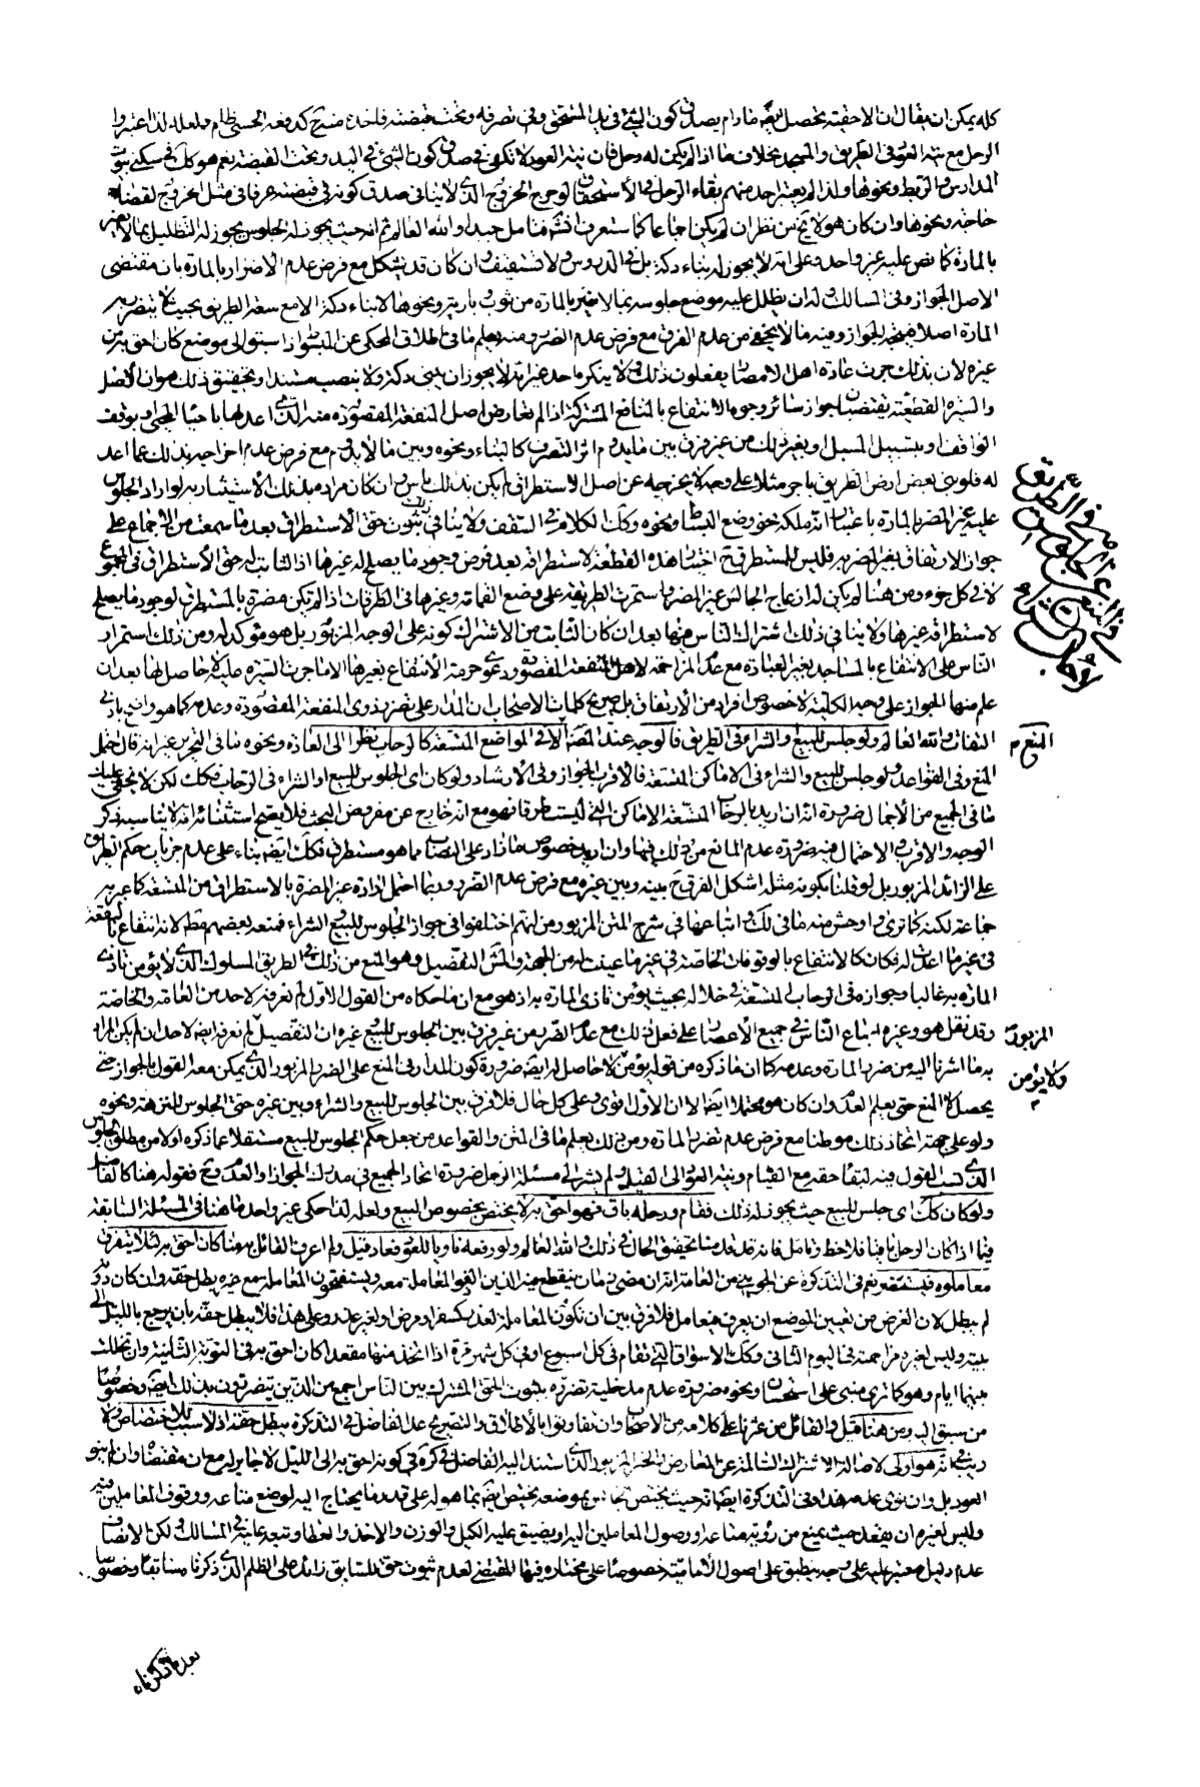 كله يمكن ان يقال ان الاحقية تحصل فيه مادام يصدق كون الشئ في يد المستحق وفي تصرفه وتحت قبضته فاخذه منه كدفعه الحسى ظلم ولعله لذا اعتبروا
الرحل مع نية العود في الطريق والمسجد بخلاف ما اذا لم يكن له رحل فان نية العود لا تكفى في صدق كون الشئ في اليد وتحت القبضة نعم هو كك في سكنى بيوت
المدارس والربط ونحوها ولذا لم يعتبر احد منهم بقاء الرحل في الاستحقاق لو خرج الخروج الذى لا ينافى صدق كونه في قبضته عرفا في مثل الخروج لقضاء
حاجة ونحوها وان كان هو لا يخ من نظر ان لم يكن اجماعا كما ستعرف انش فتامل جيدا والله العالم ثم انه حيث يجوز له الجلوس يجوز له التظليل بما لا يضر
بالمارة كما نص عليه غير واحد وعلى انه لا يجوز له بناء دكة بل في الدروس ولا تسقيف وان كان قد يشكل مع فرض عدم الاضرار بالمارة بان مقتضى
الاصل الجواز وفي المسالك وله ان يظلل عليه موضع جلوسه بما لا يضر بالمارة من ثوب وبارية ونحوها لا بناء دكة الا مع سعة الطريق بحيث لا يتضرر به
المارة اصلا فيتجه الجواز وفيه ما لا يخفى من عدم الفرق مع فرض عدم الضرر ومنه يعلم ما في اطلاق المحكى عن المبسوط اذا سبق الى موضع كان احق به من
غيره لان بذلك جرت عادة اهل الامصار يفعلون ذلك ولا ينكره احد غير انه لا يجوز ان يبنى دكة ولا ينصب مستندا وتحقيق ذلك هو ان الاصل
والسيرة القطعية يقتضيان جواز سائر وجوه الانتفاع بالمنافع المشتركة اذا لم تعارض اصل المنفعة المقصودة منه الذى اعد لها باحياء المحيى او بوقف
الواقف او بتسبيل المسبل او بغير ذلك من غير فرق بين ما يدوم اثر التصرف كالبناء ونحوه وبين ما لا يدوم مع فرض عدم اخراجه بذلك عما اعد
له فلو بنى بعض ارض الطريق باجر مثلا على وجه لا يخرجه عن اصل الاستطراق لم يكن بذلك باس وان كان مراده بذلك الاستيثار به لو اراد الجلوس
عليه غير المضر بالمارة باعتبار انه ملكه نحو وضع البساط ونحوه وكك الكلام في السقف ولا ينافى ذلك ثبوت حق الاستطراق بعد ما سمعت من الاجماع على
جواز الارتفاق بغير المضر به فليس للمستطرق ح اختيار هذه القطعة لاستطراقه بعد فرض وجود ما يصلح له غيرها اذ الثابت له حق الاستطراق في المجموع
لا في كل جزء ومن هنا لم يكن له ازعاج الجالس غير المضر واستمرت الطريقة على وضع القمامة وغيرها في الطرقات اذا لم تكن مضرة بالمستطرق لوجود ما يصلح
لاستطراقه غيرها ولا ينافى ذلك اشتراك الناس فيها بعد ان كان الثابت من الاشتراك كونه على الوجه المزبور بل هو مؤكد له ومن ذلك استمرار
الناس على الانتفاع بالمساجد بغير العبادة مع عدم المزاحمة لاهل المنفعة المقصودة ودعوى حرمة الانتفاع بغيرها الا ما جرت السيرة عليه لا حاصل لها بعد ان
علم منها الجواز على وجه الكلية لا خصوص افراد من الارتفاق بل صريح كلمات الاصحاب ان المدار على تضرر ذوى المنفعة المقصودة وعدمه كما هو واضح بادنى
التفات والله العالم ولو جلس للبيع والشراء في الطريق فالوجه عند المص المنع الا في المواضع المتسعة كالرحاب نظرا الى العادة ونحوه ما في التحرير غير انه قال احتمل
المنع وفي القواعد ولو جلس للبيع والشراء في الاماكن المتسعة فالاقرب الجواز وفي الارشاد ولو كان اى الجلوس للبيع او الشراء في الرحاب فكك لكن لا يخفى عليك
ما في الجميع من الاجمال ضرورة انه ان اريد بالرحاب المتسعة الاماكن التى ليست طرقا فهو مع انه خارج عن مفروض البحث فلا يصح استثنائه لا يناسبه ذكر
الوجه والاقرب والاحتمال فيه ضرورة عدم المانع من ذلك فيها وان اريد خصوص ما زاد على النصاب مما هو مستطرق فكك ايضا بناء على عدم جريان حكم الطريق
على الزائد المزبور بل لو قلنا بكونه مثله اشكل الفرق ح بينه وبين غيره مع فرض عدم الضرر وربما احتمل ارادة غير المضرة بالاستطراق من المتسعة كما عبر به
جماعة لكنه كما ترى واوحش منه ما في لك واتباعها في شرح المتن المزبور من انهم اختلفوا في جواز الجلوس للبيع والشراء فمنعه بعضهم مطلقا لانه انتفاع بالبقعة
في غير ما اعدت له فكان كالانتفاع بالوقوفات الخاصة في غير ما عينت له من الجهة والاشهر التفصيل وهو المنع من ذلك في الطريق المسلوك الذى لا يؤمن تاذى
المارة به غالبا وجوازه في الرحاب المتسعة في خلاله بحيث يؤمن تاذى المارة به اذ هو مع ان ما حكاه من القول الاول لم نعرفه لاحد من العامة والخاصة
وقد نقل هو وغيره اجماع الناس في جميع الاعصار على فعل ذلك مع عدم الضرر من غير فرق بين الجلوس للبيع وغيره ان التفصيل لم نعرفه ايضا لاحد ان لم يكن المراد
به ما اشرنا اليه من ضرر المارة وعدمه كما ان ما ذكره من قوله يؤمن لا حاصل له ايضا ضرورة كون المدار في المنع على الضرر المزبور الذى يمكن معه القول بالجواز حتى
يحصل لا المنع حتى يعلم العدم وان كان هو محتملا ايضا الا ان الاول اقوى وعلى كل حال فلا فرق بين الجلوس للبيع والشراء وبين غيره حتى الجلوس للنزهة ونحوه
ولو على جهة اتخاذ ذلك موطنا مع فرض عدم تضرر المارة ومن ذلك يعلم ما في المتن والقواعد من جعل حكم الجلوس للبيع مستقلا عما ذكره اولا من مطلق الجلوس
الذى نسب القول فيه لبقاء حقه مع القيام ونية العود الى القيل ولم يشر الى مسئلة الرحل ضرورة اتحاد الجميع في مدرك الجواز والعدم وح فقوله هنا كالفاضل
ولو كان كك اى جلس للبيع حيث يجوز له ذلك فقام ورحله باق فهو احق به لا يختص بخصوص البيع ولعله لذا حكى غير واحد ما هنا في المسئلة السابقة
فيما اذا كان الرحل باقيا فلاحظ وتامل فانه قد قدمنا تحقيق الحال في ذلك والله العالم ولو رفعه ناويا للعود فعاد قيل ولم اعرف القائل به هنا كان احق به لئلا يتفرق
معاملوه فيستضر نعم في التذكرة عن الجويني من العامة انه ان مضى زمان ينقطع فيه الذين الفوا المعاملة معه ويستفتحون المعاملة مع غيره بطل حقه وان كان دونه
لم يبطل لان الغرض من تعيين الموضع ان يعرف فيعامل فلا فرق بين ان تكون المعاملة لعذر كسفر او مرض او لغير عذر وعلى هذا فلا يبطل حقه بان يرجع بالليل الى
بيته وليس لغيره مزاحمته في اليوم الثانى وكك الاسواق التى تقام في كل اسبوع او في كل شهر مرة اذا اتخذ منها مقعدا كان احق به في النوبة الثانية وان تخللت
بينهما ايام وهو كما ترى مبنى على استحسان ونحوه ضرورة عدم مدخلية تضرره بثبوت الحق المشترك بين الناس اجمع من الذين يتضررون بذلك ايضا وخصوصا
من سبق اليه ومن هنا قيل والقائل من عثرنا على كلامه من الاصحاب وان تفاوتوا بالاطلاق والتصريح عدا الفاضل في التذكرة يبطل حقه اذ لا سبب للاختصاص ولا
ريب في انه هو اولى لاصالة الاشتراك السالمة عن المعارض والخبر المزبور الذى استند اليه الفاضل في كره في كونه احق به الى الليل لا جابر له مع ان مقتضاه وان لم ينو
العود بل وان نوى عدمه هذا وفي التذكرة ايضا انه حيث يختص الجالس بموضعه يختص ايضا بما حوله على قدر ما يحتاج اليه لوضع متاعه ووقوف المعاملين فيه
وليس لغيره ان يقعد حيث يمنع من رؤية متاعه او وصول المعاملين اليه او يضيق عليه الكيل والوزن والاخذ والعطا وتبعه عليه في المسالك ولكن الانصاف
عدم دليل معتبر عليه على وجه ينطبق على اصول الامامية خصوصا على مختاره فيها المقتضى لعدم ثبوت حق للسابق زائد على الظلم الذى ذكرنا سابقا وخصوصا
في المنع عن الجلوس
المنع م
المزبور
ولا يؤمن
بعد ما ذكرناه